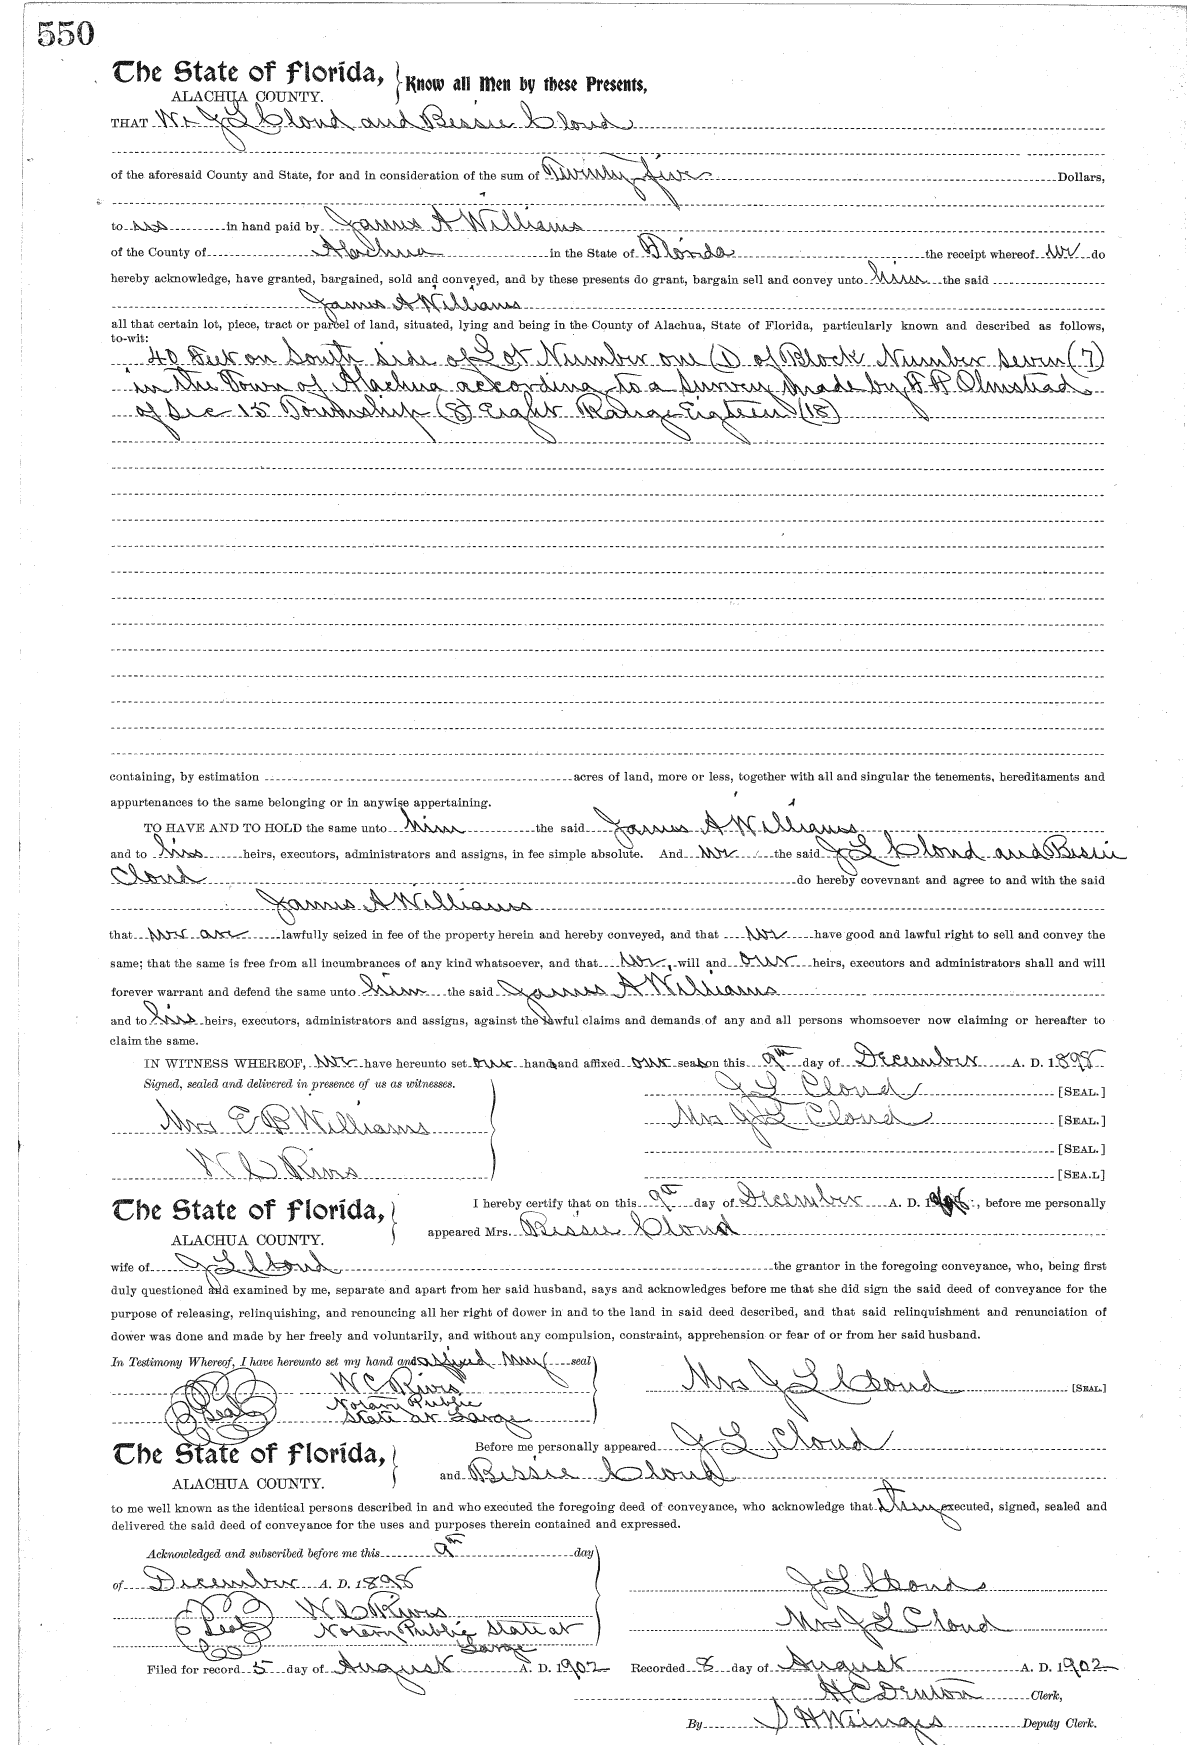 550
The State of Florida, Know all Men by these Presents,
ALACHUA COUNTY.
THAT We J L Cloud and Bessie Cloud
of the aforesaid County and State, for and in consideration of the sum of Twenty five Dollars,
to us in hand paid by James A Williams
of the County of Alachua in the State of Florida the receipt whereof we do
hereby acknowledge, have granted, bargained, sold and conveyed, and by these presents do grant, bargain sell and convey unto him the said
James A Williams
all that certain lot, piece, tract or parcel of land, situated, lying and being in the County of Alachua, State of Florida, particularly known and described as follows,
to-wit:
40 Feet on South side of Lot Number one (1) of Block Number seven (7)
in the Town of Alachua according to a survey made by Olmstead
of Sec 15 Township (8) Eight Range Eighteen (18)
containing, by estimation acres of land, more or less, together with all and singular the tenements, hereditaments and
appurtenances to the same belonging or in anywise appertaining.
TO HAVE AND TO HOLD the same unto him the said James A Williams
and to his heirs, executors, administrators and assigns, in fee simple absolute. And we the said J L Cloud and Bessie
Cloud do hereby covevnant and agree to and with the said
James A Williams
that we are lawfully seized in fee of the property herein and hereby conveyed, and that we have good and lawful right to sell and convey the
same; that the same is free from all incumbrances of any kind whatsoever, and that we, will and our heirs, executors and administrators shall and will
forever warrant and defend the same unto him the said James A Williams
and to his heirs, executors, administrators and assigns, against the lawful claims and demands of any and all persons whomsoever now claiming or hereafter to
claim the same.
IN WITNESS WHEREOF, we have hereunto set our hands and affixed our seals on this 9th day of December A. D. 1898
Signed, sealed and delivered in presence of us as witnesses. J L Cloud [SEAL.]
Mrs E B Williams Mrs J L Cloud [SEAL.]
[SEAL.]
W C Rivis [SEA.L]
The State of Florida, I hereby certify that on this 9th day of December A. D. 1898, before me personally
ALACHUA COUNTY. appeared Mrs. Bessie Cloud
wife of J L Cloud the grantor in the foregoing conveyance, who, being first
duly questioned and examined by me, separate and apart from her said husband, says and acknowledges before me that she did sign the said deed of conveyance for the
purpose of releasing, relinquishing, and renouncing all her right of dower in and to the land in said deed described, and that said relinquishment and renunciation of
dower was done and made by her freely and voluntarily, and without any compulsion, constraint, apprehension or fear of or from her said husband.
In Testimony Whereof, I have hereunto set my hand and affixed my seal
W C Rivis Mrs J L Cloud [SEAL.]
Notary Public
Seal State at Large
The State of Florida, Before me personally appeared J L Cloud
ALACHUA COUNTY. and Bessie Cloud
to me well known as the identical persons described in and who executed the foregoing deed of conveyance, who acknowledge that they executed, signed, sealed and
delivered the said deed of conveyance for the uses and purposes therein contained and expressed.
Acknowledged and subscribed before me this 9th day
of December A. D. 1898 J L Cloud
W C Rivis
Seal Notary Public State at Mrs J L Cloud
Large
Filed for record 5 day of August A. D. 1902 Recorded 8 day of August A. D. 1902
H C Denton Clerk,
By S H Wienges Deputy Clerk.